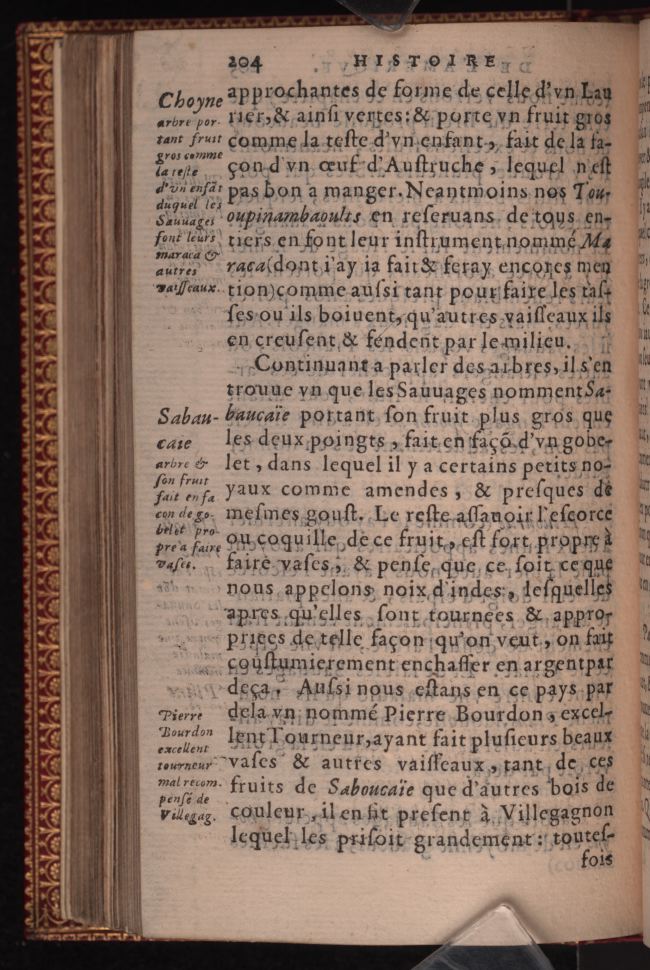 204 HISTOIRE
approchantes de forme de celle d'vn Lau
rier,& ainſi vertes:& porte vn fruit gros
comme la teſte d'vn enfant, fait de la fa-
çon d'vn œuf d'Auſtruche, lequel n'eſt
pas bon a manger. Neantmoins nos Tou-
oupinambaoults en reſeruans de tous en-
tiers en font leur inſtrument nommé Ma
raca(dont i'ay ia fait & feray encores men
tion)comme auſsi tant pour faire les taſ-
ſes ou ils boiuent, qu'autres vaiſſeaux ils
en creuſent & fendent par le milieu.
Continuant a parler des arbres, il s'en
trouue vn que les Sauuages nomment Sa-
baucaïe portant ſon fruit plus gros que
les deux poingts, fait en façõ d'vn gobe-
let, dans lequel il y a certains petits no-
yaux comme amendes, & preſques de
meſmes gouſt. Le reſte aſſauoir l'eſcorce
ou coquille de ce fruit, eſt fort propre à
faire vaſes, & penſe que ce ſoit ce que
nous appelons noix d'indes, leſquelles
apres qu'elles ſont tournees & appro-
priees de telle façon qu'on veut, on fait
couſtumierement enchaſſer en argent par
deça. Auſsi nous eſtans en ce pays par
dela vn nommé Pierre Bourdon, excel-
lent Tourneur, ayant fait pluſieurs beaux
vaſes & autres vaiſſeaux, tant de ces
fruits de Saboucaïe que d'autres bois de
couleur, il en fit preſent à Villegagnon
lequel les priſoit grandement: touteſ-
fois
Choyne
arbre por-
tant fruit
gros comme
la teſte
d'vn enfãt
duquel les
Sauuages
font leurs
maraca &
autres
vaiſſeaux.
Sabau-
caie
arbre &
ſon fruit
fait en fa
con de go-
belet pro
pre a faire
vaſes.
Pierre
Bourdon
excellent
tourneur
mal recom-
penſé de
Villegag.